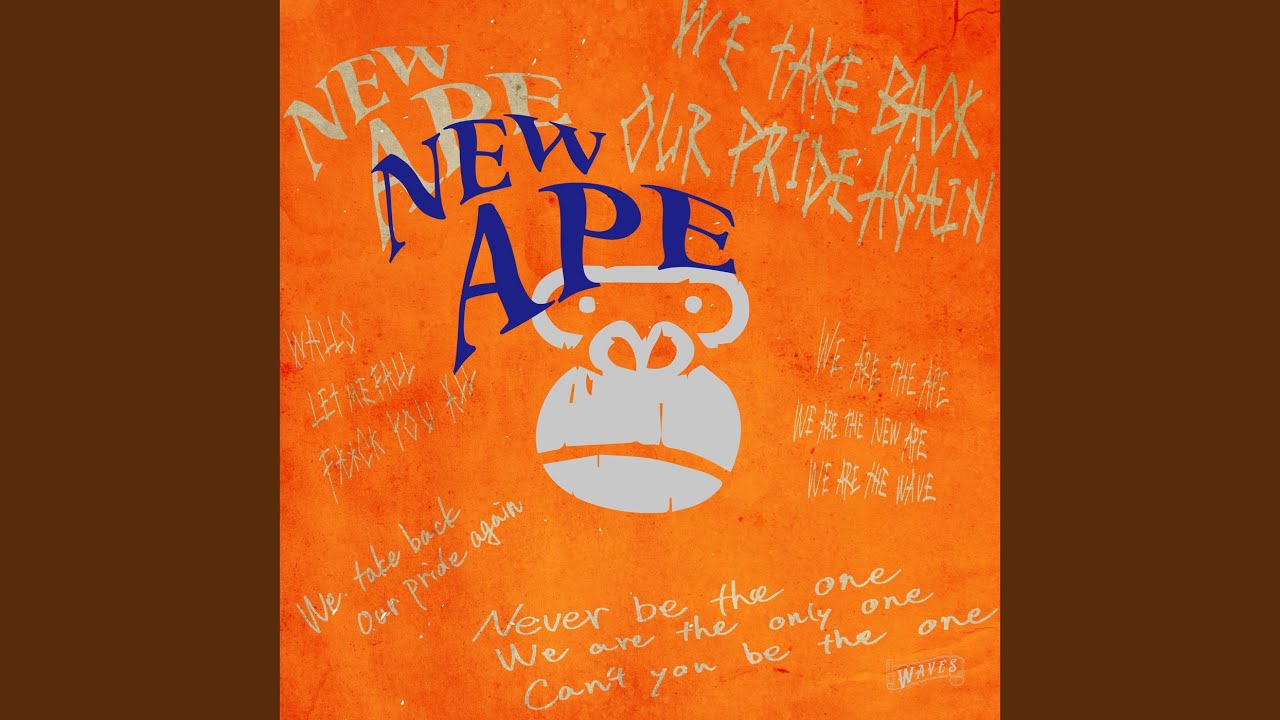 NEW
APE
NEW
APE
WE TAKE BACK
OUR PRIDE AGAIN
WALLS
LET ME FALL
FA*CK YOU ALL
WE ARE THE APE
WE ARE THE NEW APE
WE ARE THE WAVE
We take back
our pride again
Never be the one
We are the only one
Can't you be the one
WAVES